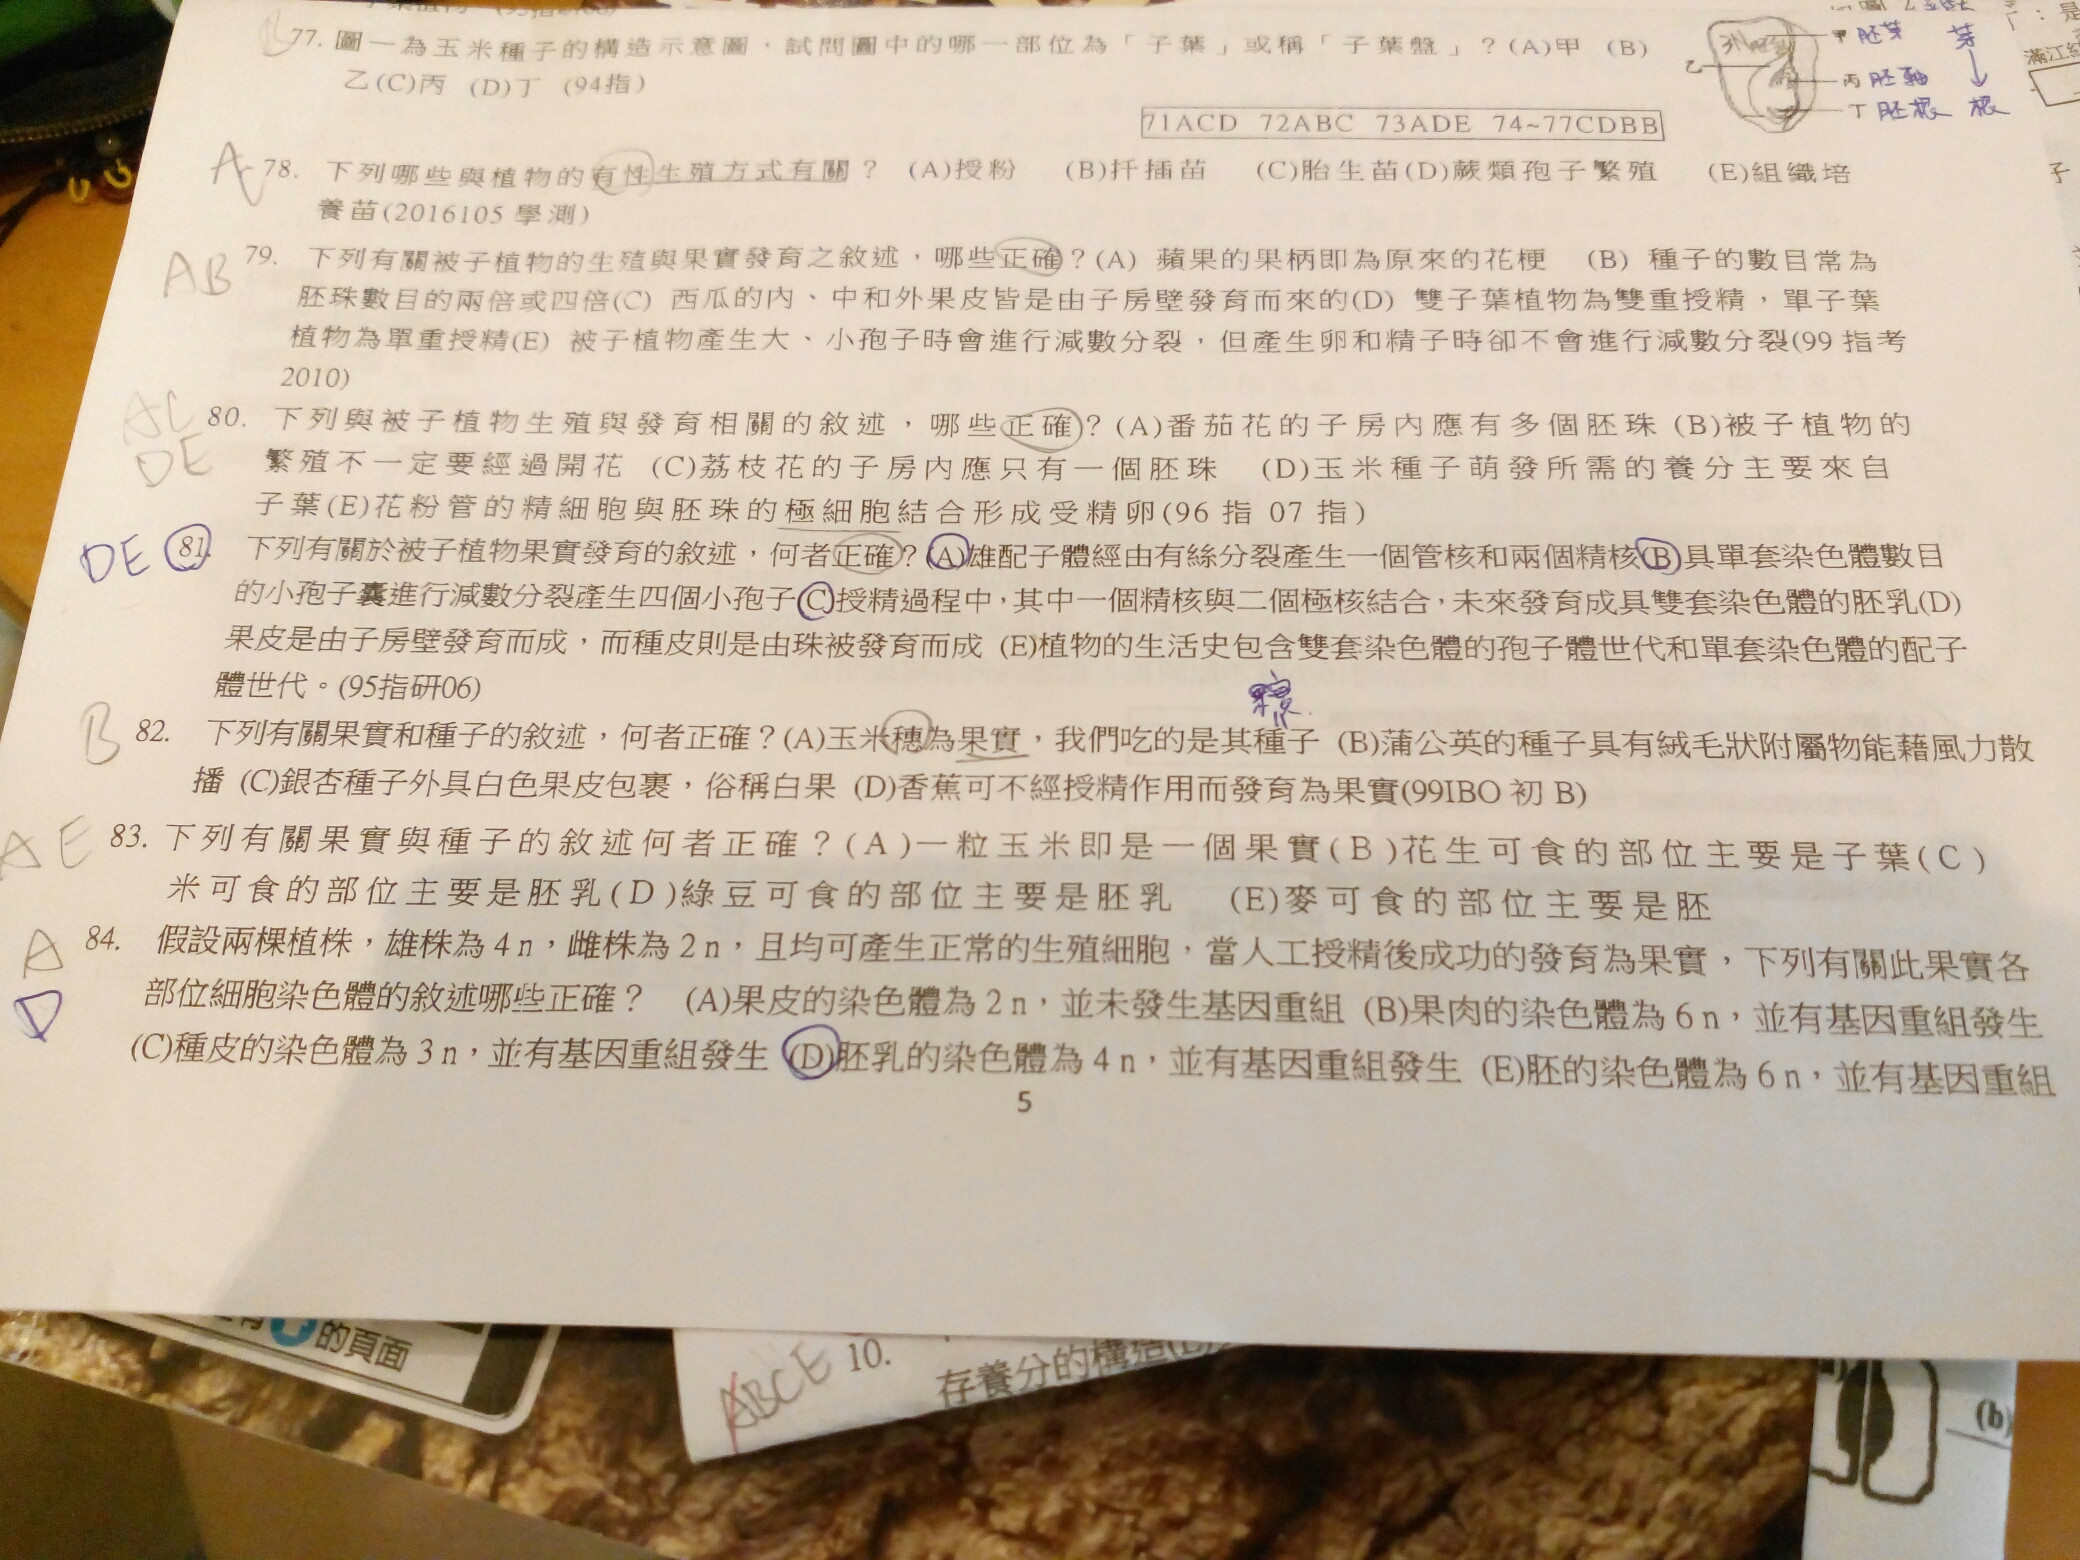 77. 圖一為玉米種子的構造示意圖，試問圖中的哪一部位為「子葉」或稱「子葉盤」？(A)甲 (B)
乙(C)丙 (D)丁 (94指)
乙
甲 胚芽 芽
丙 胚軸
丁 胚根 根
滿江紅
71ACD 72ABC 73ADE 74~77CDBB
A 78. 下列哪些與植物的有性生殖方式有關？ (A)授粉 (B)扦插苗 (C)胎生苗(D)蕨類孢子繁殖 (E)組織培
養苗(2016105 學測)
子
AB 79. 下列有關被子植物的生殖與果實發育之敘述，哪些正確？(A) 蘋果的果柄即為原來的花梗 (B) 種子的數目常為
胚珠數目的兩倍或四倍(C) 西瓜的內、中和外果皮皆是由子房壁發育而來的(D) 雙子葉植物為雙重授精，單子葉
植物為單重授精(E) 被子植物產生大、小孢子時會進行減數分裂，但產生卵和精子時卻不會進行減數分裂(99 指考
2010)
AC
DE
80. 下列與被子植物生殖與發育相關的敘述，哪些正確？(A)番茄花的子房內應有多個胚珠 (B)被子植物的
繁殖不一定要經過開花 (C)荔枝花的子房內應只有一個胚珠 (D)玉米種子萌發所需的養分主要來自
子葉(E)花粉管的精細胞與胚珠的極細胞結合形成受精卵(96 指 07 指)
DE 81. 下列有關於被子植物果實發育的敘述，何者正確？(A)雄配子體經由有絲分裂產生一個管核和兩個精核(B)具單套染色體數目
的小孢子囊進行減數分裂產生四個小孢子(C)授精過程中，其中一個精核與二個極核結合，未來發育成具雙套染色體的胚乳(D)
果皮是由子房壁發育而成，而種皮則是由珠被發育而成 (E)植物的生活史包含雙套染色體的孢子體世代和單套染色體的配子
體世代。(95指研06)
B 82. 下列有關果實和種子的敘述，何者正確？(A)玉米穗為果實，我們吃的是其種子 (B)蒲公英的種子具有絨毛狀附屬物能藉風力散
播 (C)銀杏種子外具白色果皮包裹，俗稱白果 (D)香蕉可不經授精作用而發育為果實(99IBO 初 B)
AE 83. 下列有關果實與種子的敘述何者正確？(A)一粒玉米即是一個果實(B)花生可食的部位主要是子葉(C)
米可食的部位主要是胚乳(D)綠豆可食的部位主要是胚乳 (E)麥可食的部位主要是胚
A
D
84. 假設兩棵植株，雄株為 4 n，雌株為 2 n，且均可產生正常的生殖細胞，當人工授精後成功的發育為果實，下列有關此果實各
部位細胞染色體的敘述哪些正確？ (A)果皮的染色體為 2 n，並未發生基因重組 (B)果肉的染色體為 6 n，並有基因重組發生
(C)種皮的染色體為 3 n，並有基因重組發生 (D)胚乳的染色體為 4 n，並有基因重組發生 (E)胚的染色體為 6 n，並有基因重組
5
的頁面
ABCE 10.
存養分的構造
(b)